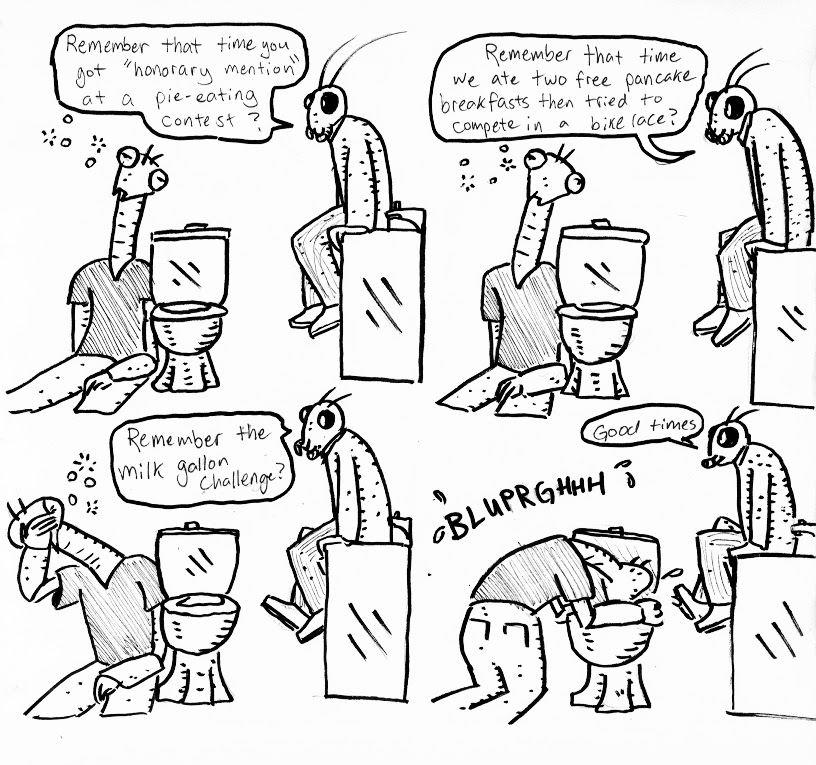 Remember that time you
got "honorary mention"
at a pie-eating
contest?
Remember that time
we ate two free pancake
breakfasts then tried to
compete in a bike race?
Remember the
milk gallon
challenge?
Good times
BLUPRGHHH